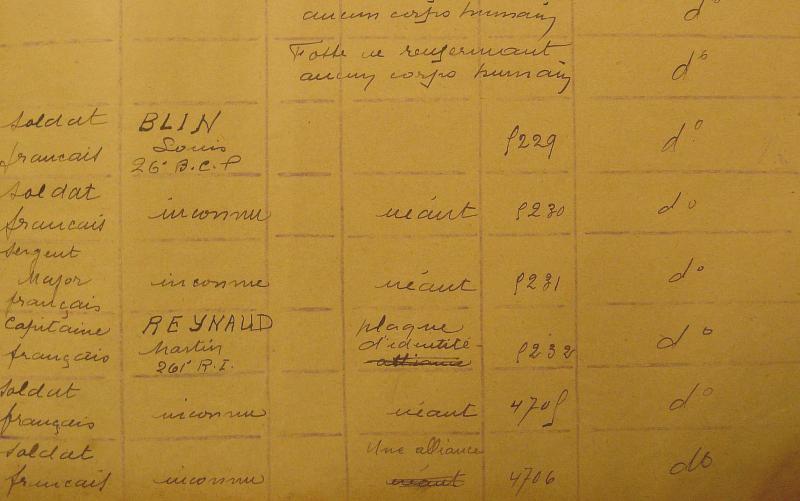 aucun corps humain d°
Fosse ne renfermant
aucun corps humain d°
soldat BLIN
francais Louis 9229 d°
26e B.C.P
soldat
francais inconnu néant 9230 do
sergent
Major inconnu néant 9231 d°
français
Capitaine REYNAUD plaque
français Martin d'identité 9232 d°
261e R.I. alliance
soldat
français inconnu néant 4705 d°
soldat Une alliance
francais inconnu néant 4706 do